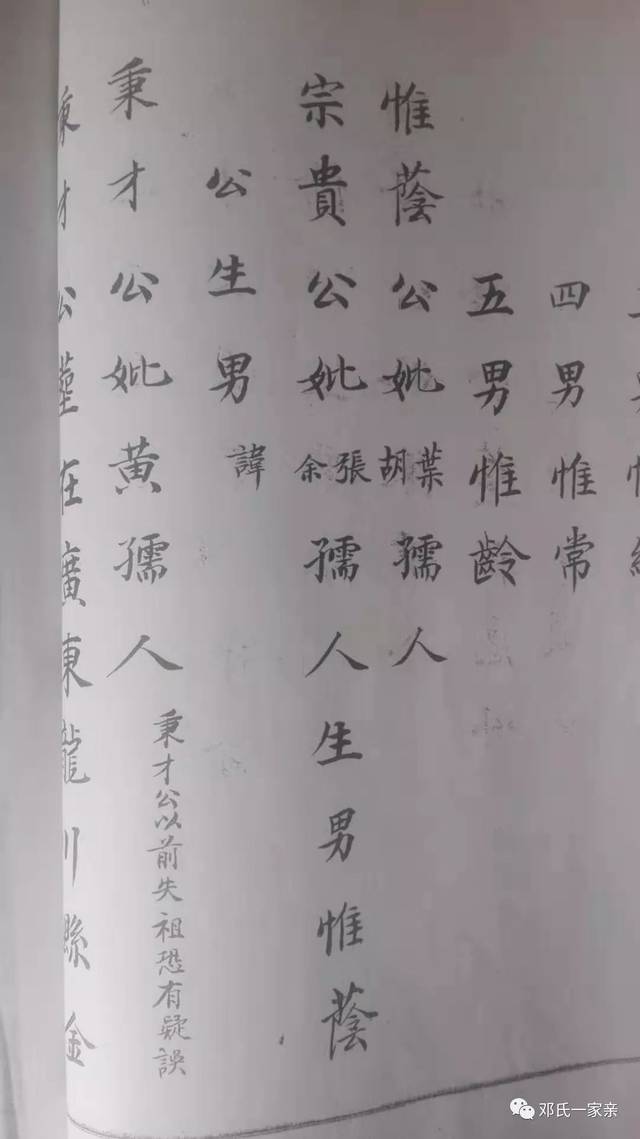 四男惟常
五男惟齡
惟蔭公妣葉胡孺人
宗貴公妣張余孺人生男惟蔭
公生男諱
秉才公妣黄孺人
秉才公以前失祖恐有疑誤
秉才公塟在廣東龍川縣金
邓氏一家亲